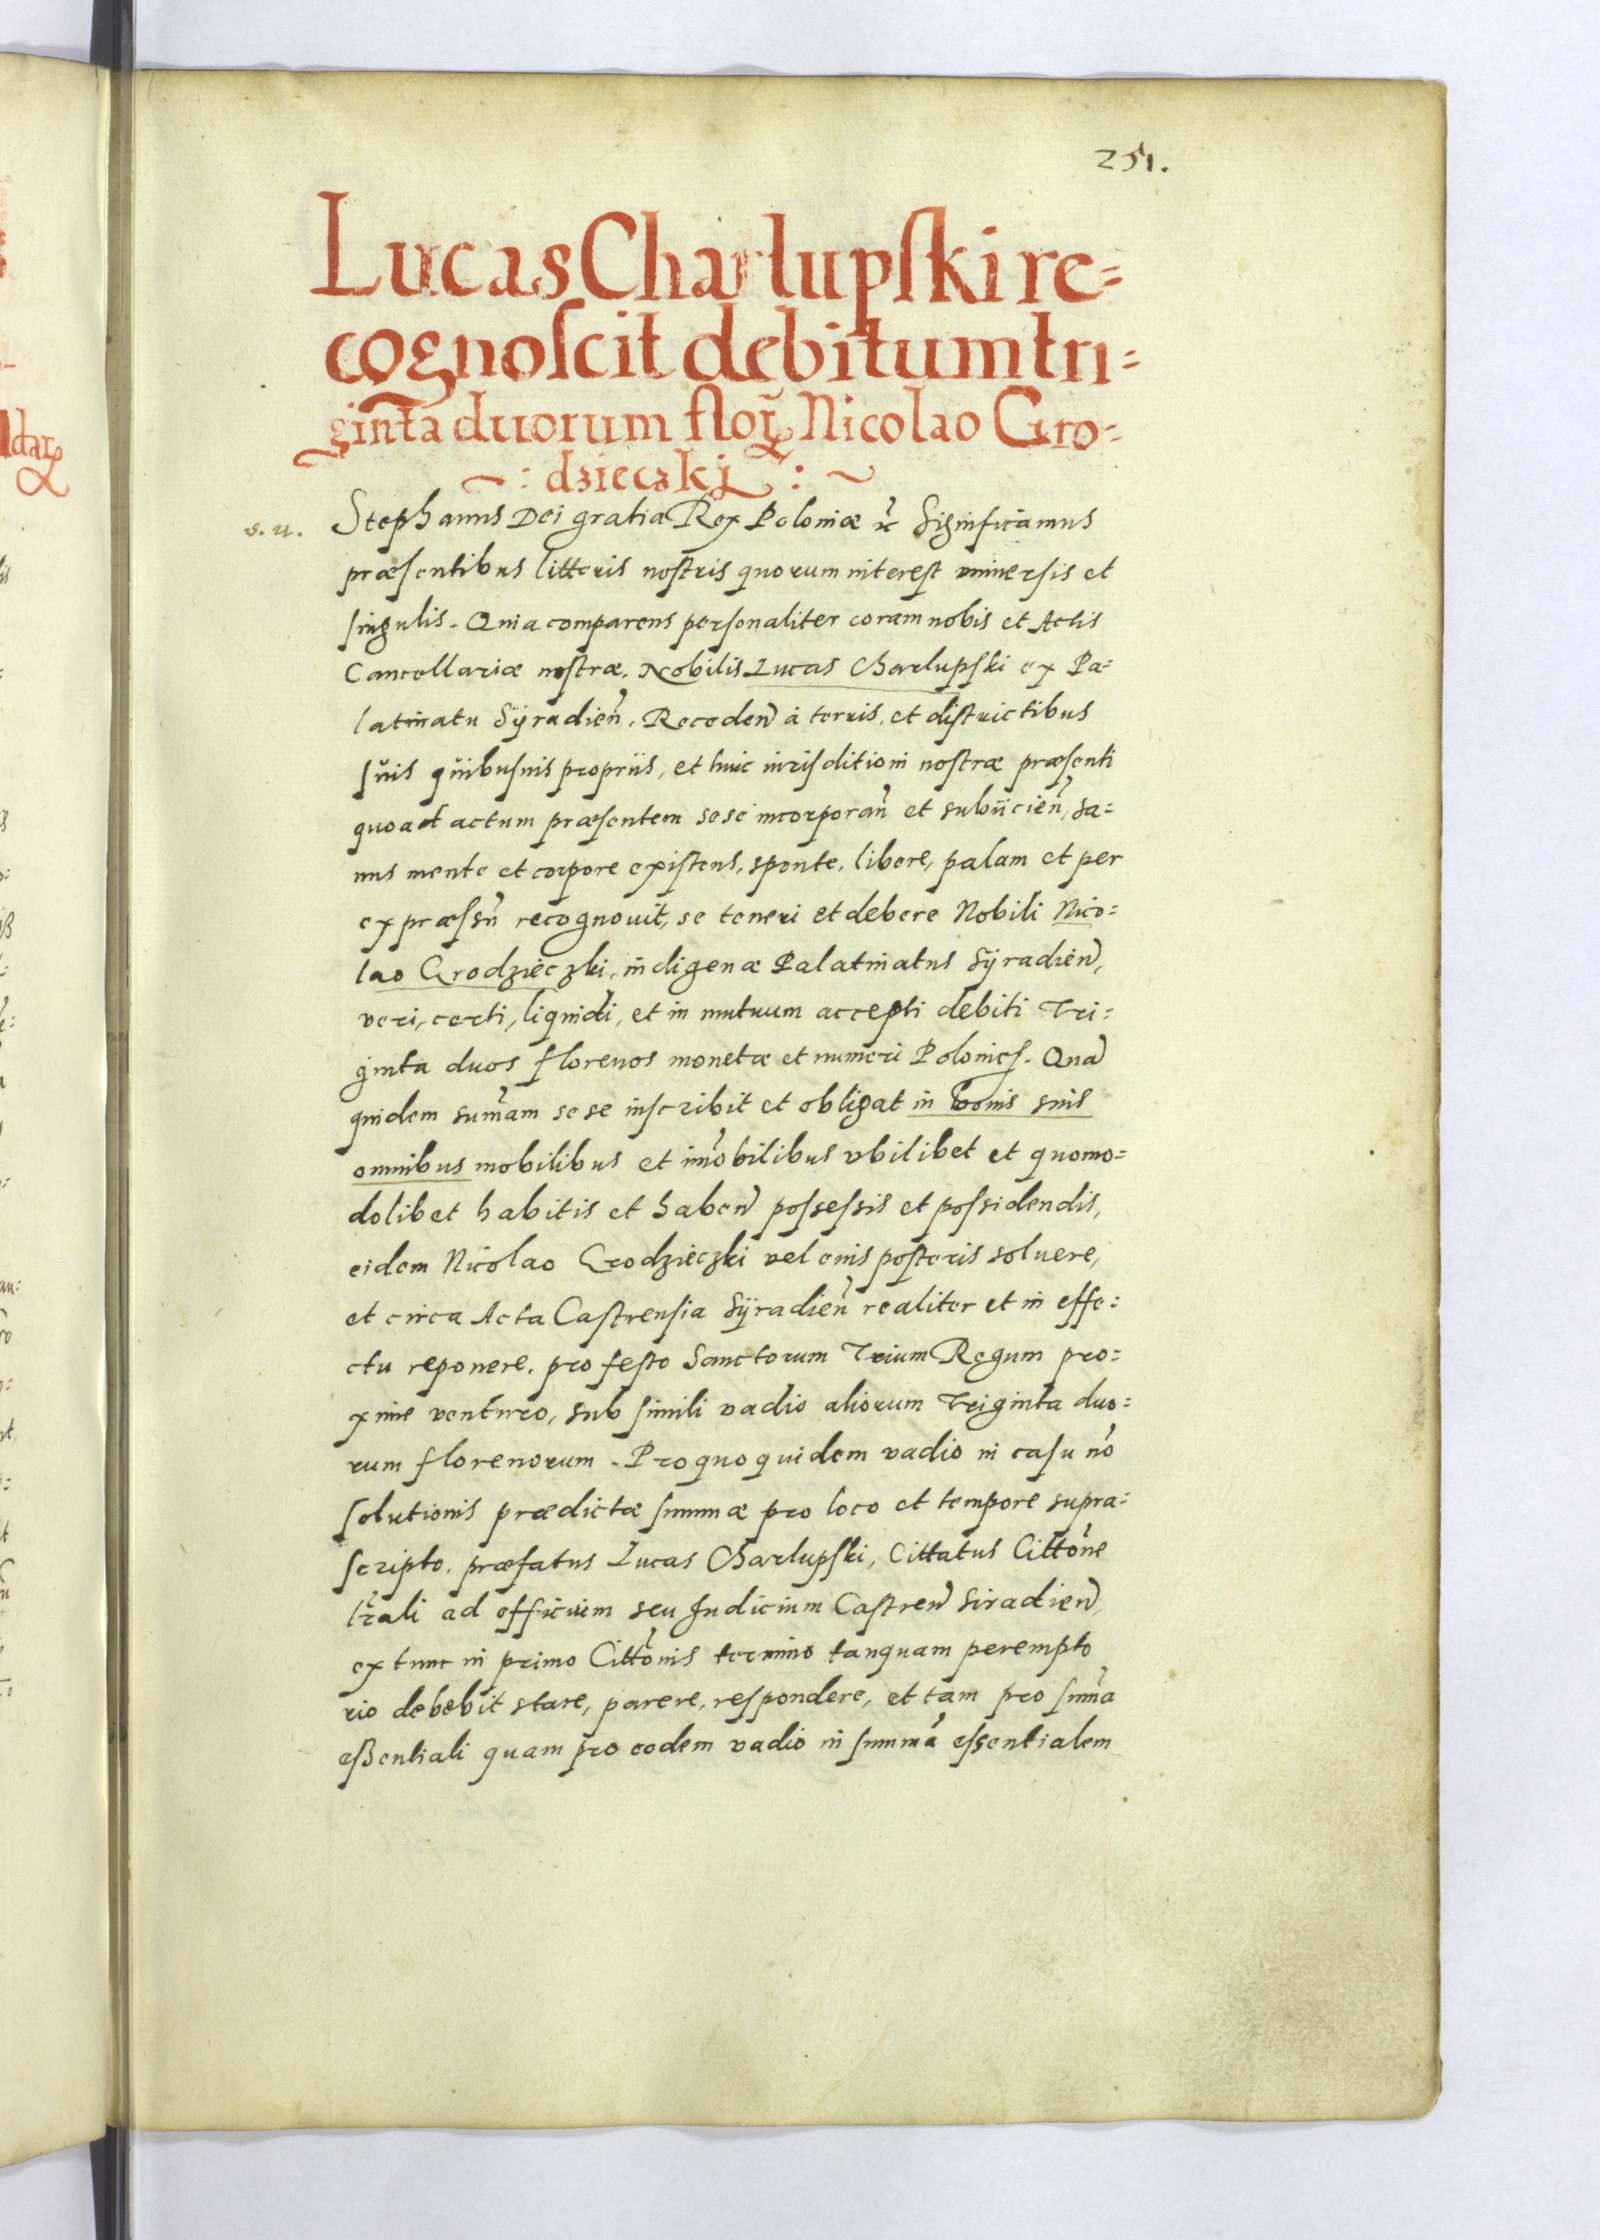 251.
Lucas Charlupski re=
cognoscit debitum tri=
ginta duorum floꝝ Nicolao Gro=
~: dzieczkj : ~
s. u. Stephanus Dei gratia Rex Poloniæ ꝛc Significamus
præsentibus litteris nostris quorum interest vniuersis et
singulis. Quia comparens personaliter coram nobis et Actis
Cancellariæ nostræ. Nobilis Lucas Charlupski ex Pa=
latinatu Syradień. Receden̄ à terris, et districtibus
suis quibusuis proprijs, et huic iurisditioni nostræ præsenti
quoad actum præsentem sese incorporan̄ et subijcien̄, sa=
nus mente et corpore existens, sponte, libere, palam et per
expræssu̅ recognouit, se teneri et debere Nobili Nico=
lao Grodzieczki, indigenæ Palatinatus Syradien̄,
veri, certi, liquidi, et in mutuum accepti debiti Tri=
ginta duos florenos monetæ et numeri Polonics. Qua̅
quidem sum̅am se se inscribit et obligat in bonis suis
omnibus mobilibus et im̅obilibus vbilibet et quomo=
dolibet habitis et haben̄ possessis et possidendis,
eidem Nicolao Grodzieczki vel eius posteris soluere,
et circa Acta Castrensia Syradien̄ realiter et in effe=
ctu reponere. pro festo Sanctorum Trium Regum pro=
xime venturo, sub simili vadio aliorum Triginta duo=
rum florenorum. Pro quo quidem vadio in casu no̅
solutionis prædictæ summæ pro loco et tempore supra=
scripto. præfatus Lucas Charlupski, Cittatus Citto̅ne
l̅rali ad officium seu Judicium Castren̄ Siradien̄,
ex tunc in primo Citto̅nis termino tanquam perempto
rio debebit stare, parere, respondere, et tam pro sum̅a
essentiali quam pro eodem vadio in summa̅ essentialem